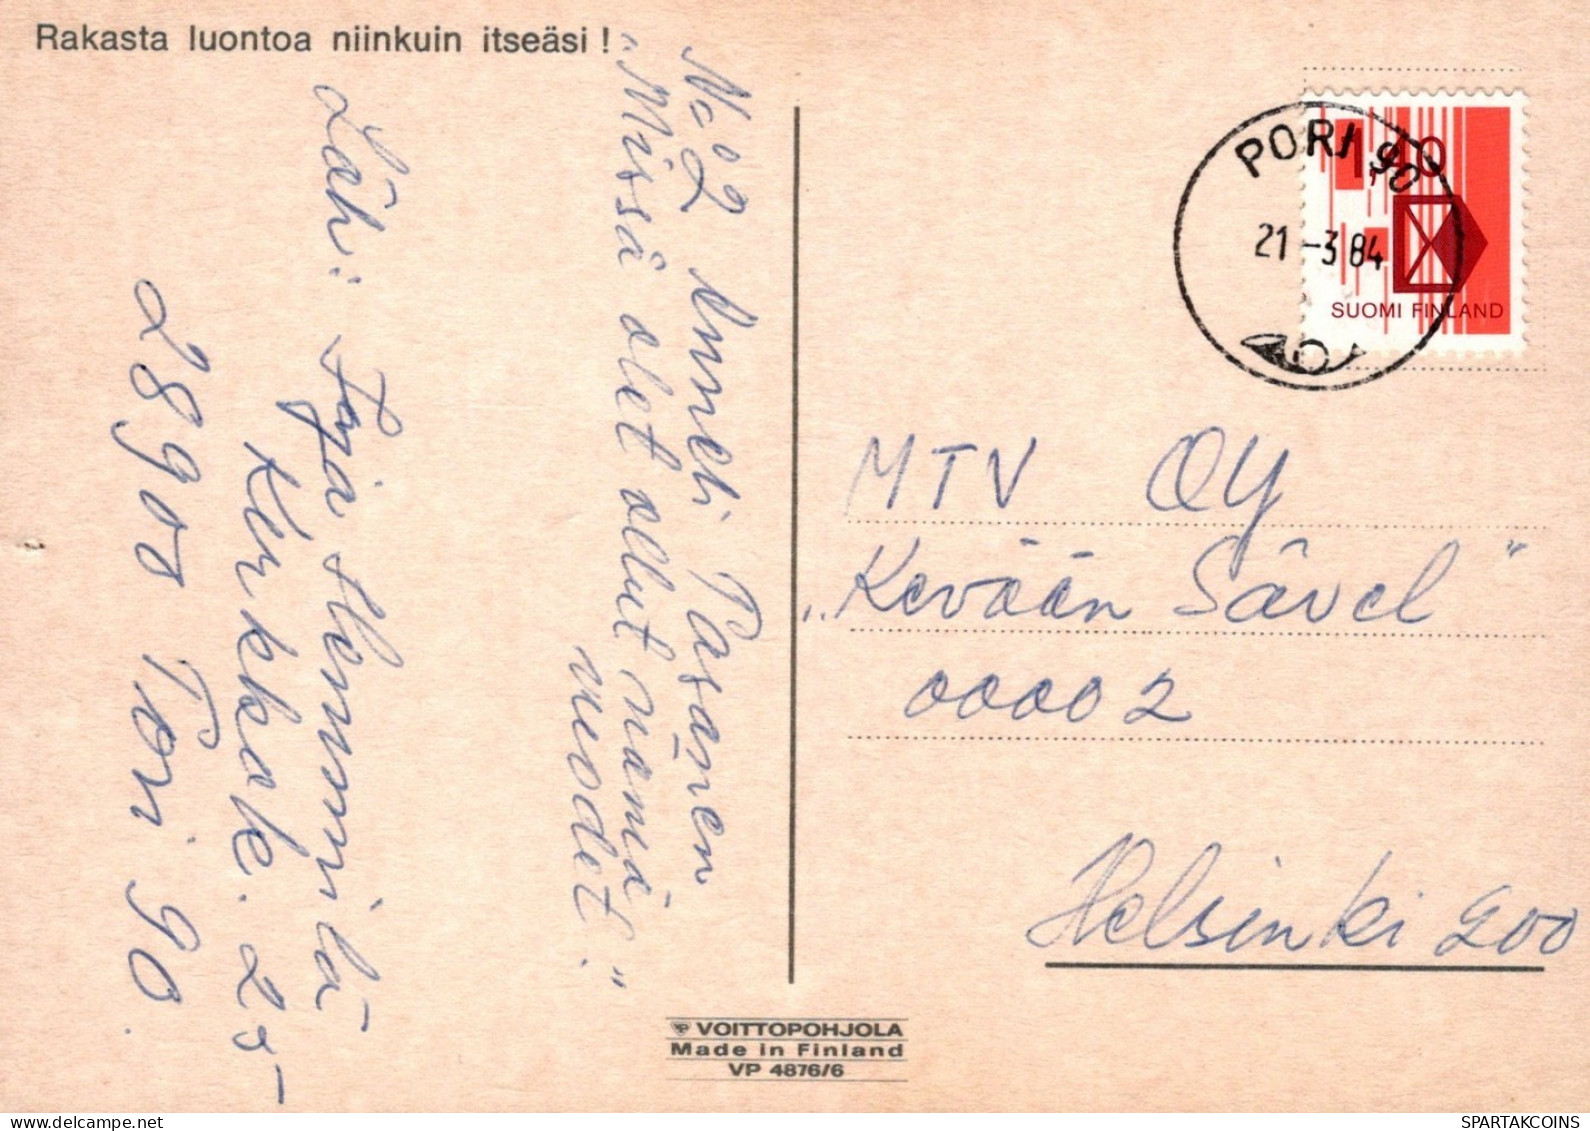 Rakasta luontoa niinkuin itseäsi !
No 2 Anneli Pasanen
"Missä olet ollut nämä
vuodet."
Läh: Hemmilä
Kerkkok. 25
28900 Pori 90.
PORI 90
21-3 84
1,40
SUOMI FINLAND
MTV OY
"Kevään Sävel"
00002
Helsinki 200
VOITTOPOHJOLA
Made in Finland
VP 4876/6
SPARTAKCOINS